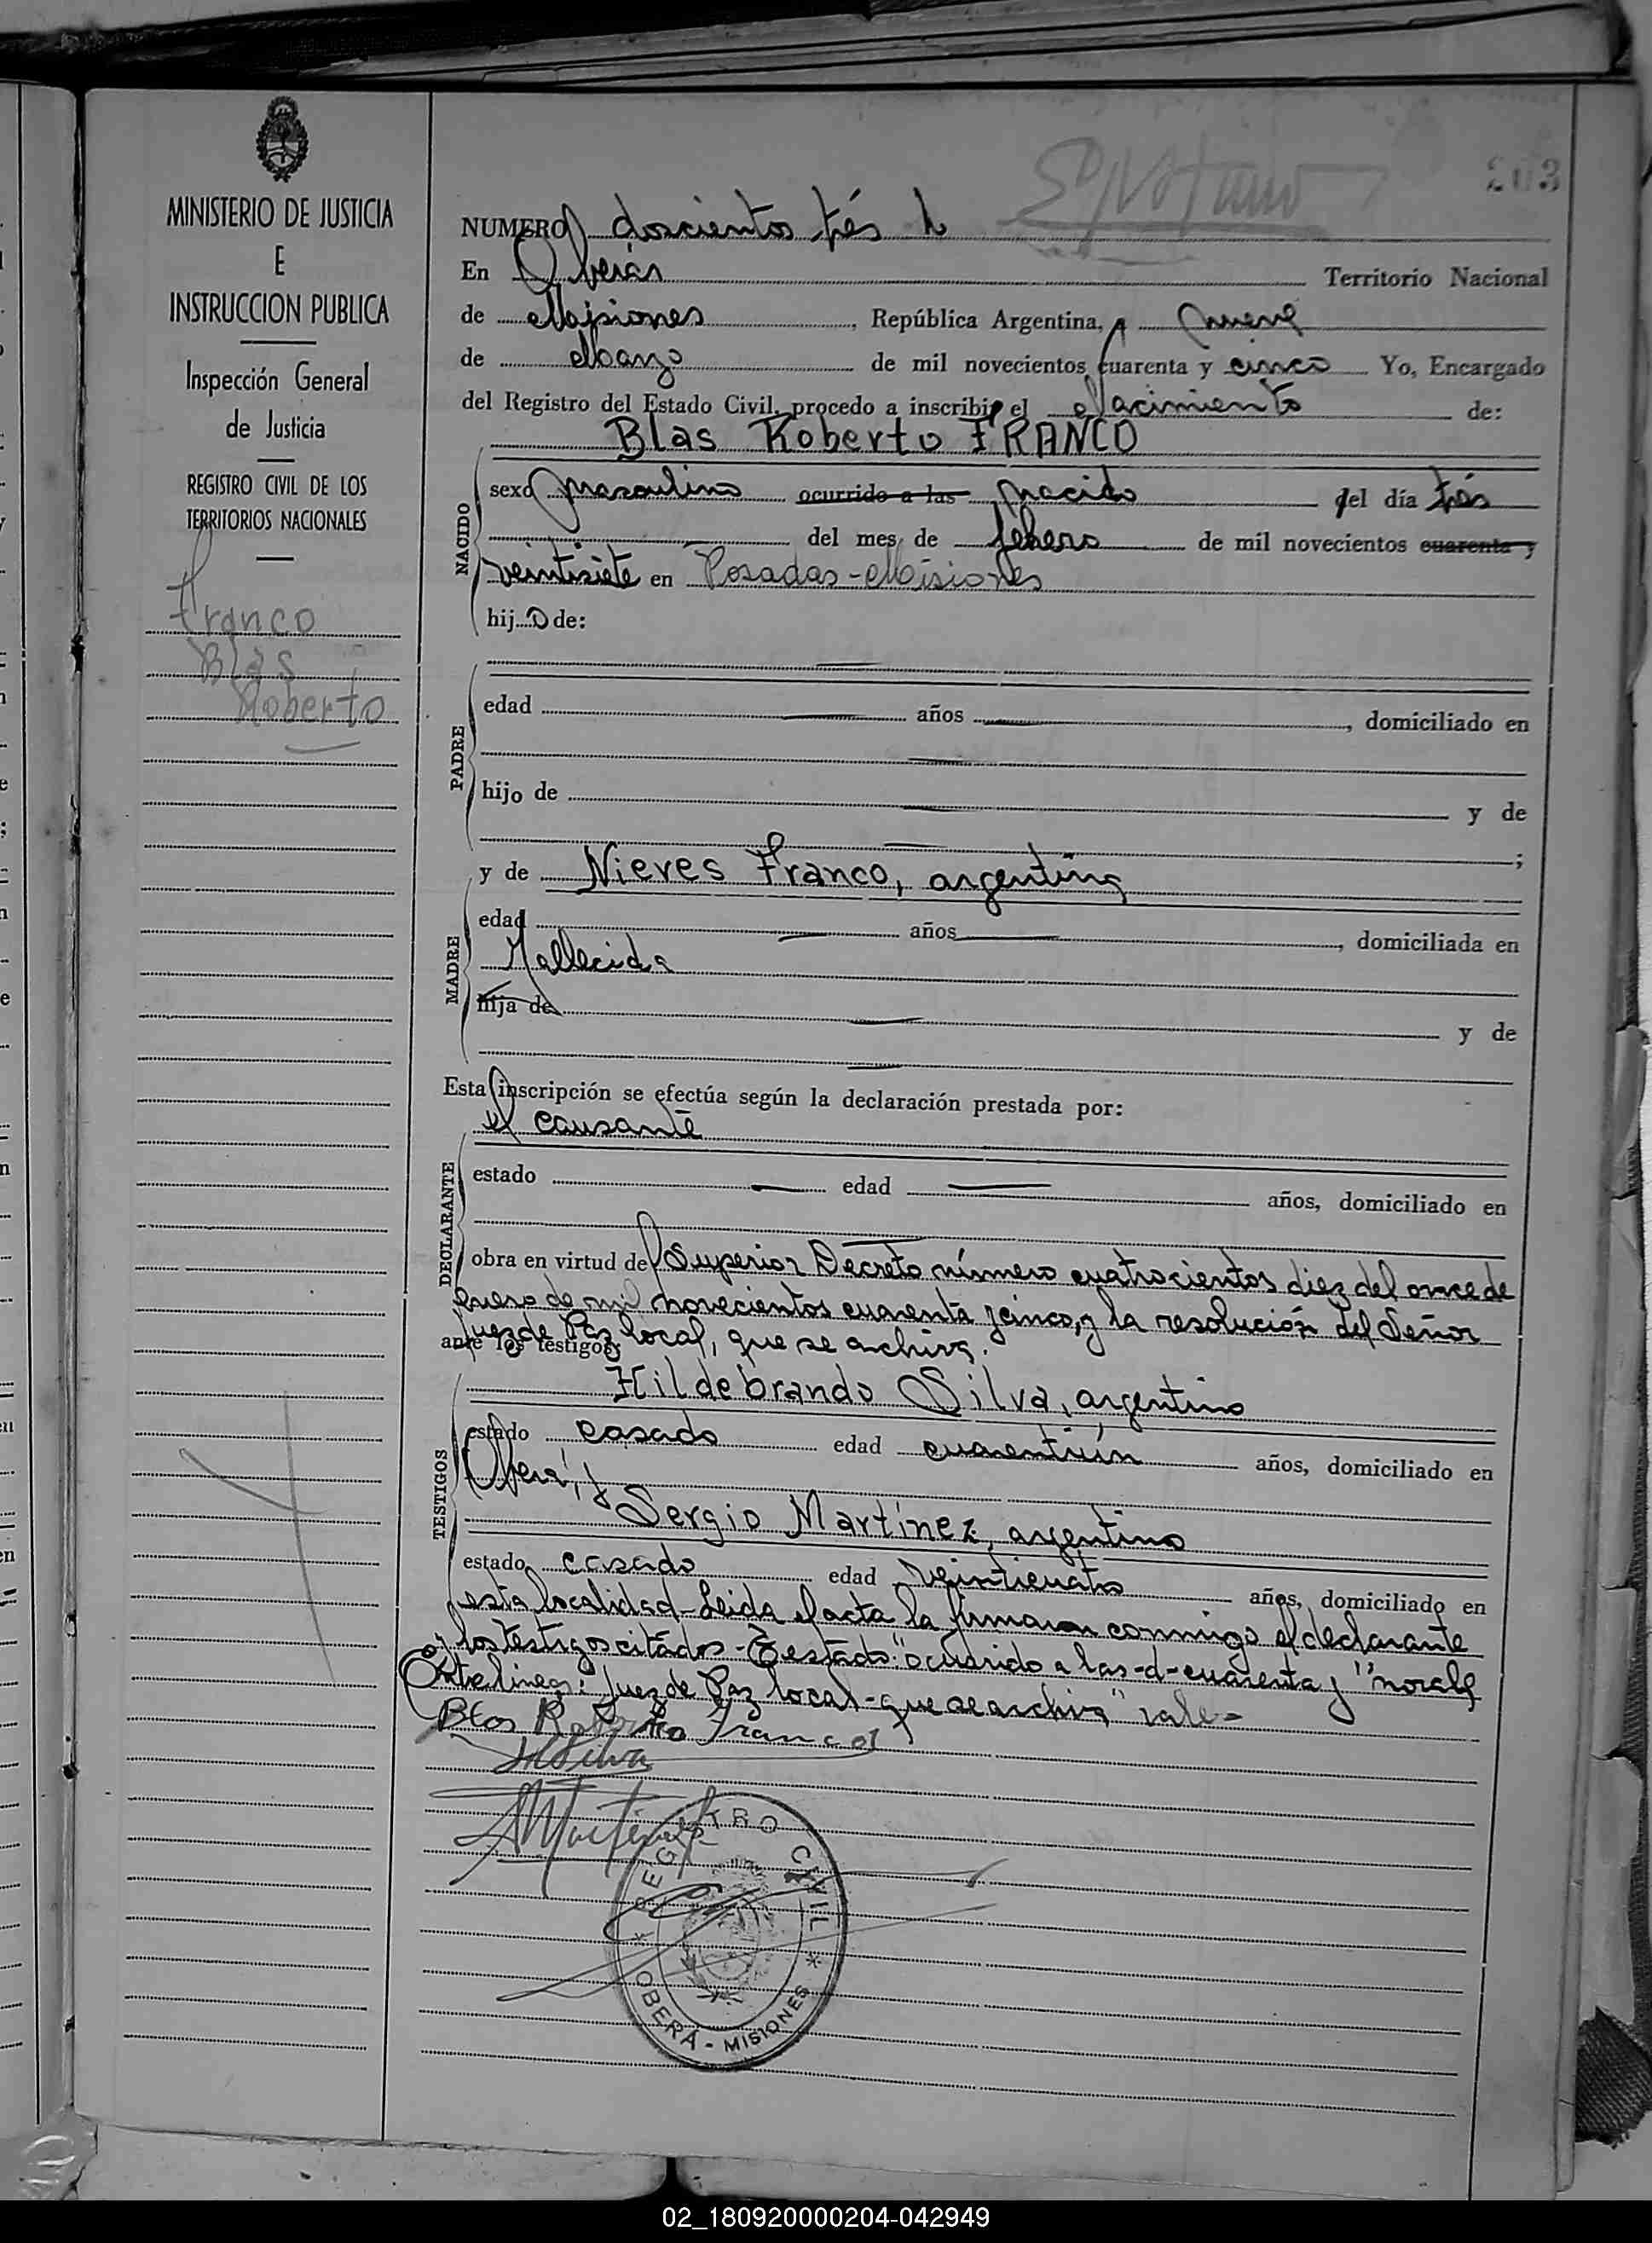 MINISTERIO DE JUSTICIA
E
INSTRUCCION PUBLICA
Inspección General
de Justicia
REGISTRO CIVIL DE LOS
TERRITORIOS NACIONALES
Franco
Blas
Roberto
203
NUMERO doscientos trés
En Oberá Territorio Nacional
de Misiones, República Argentina, a nueve
de Marzo de mil novecientos cuarenta y cinco Yo, Encargado
del Registro del Estado Civil, procedo a inscribir el Nacimiento de:
Blas Roberto FRANCO
NACIDO
sexo masculino ocurrido a las nacido del día trés
del mes de febrero de mil novecientos cuarenta y
veintisiete en Posadas - Misiones
hijo de:
PADRE
edad años, domiciliado en
hijo de y de
;
y de Nieves Franco, argentina
MADRE
edad años, domiciliada en
Fallecida
hija de y de
Esta inscripción se efectúa según la declaración prestada por:
el causante
DECLARANTE
estado edad años, domiciliado en
obra en virtud del Superior Decreto número cuatrocientos diez del once de
enero de mil novecientos cuarenta y cinco, y la resolución del Señor
Juez de Paz local, que se archiva.
ante los testigos:
TESTIGOS
Hildebrando Silva, argentino
estado casado edad cuarentiún años, domiciliado en
Oberá, y
Sergio Martínez, argentino
estado casado edad veinticuatro años, domiciliado en
esta localidad - Leida el acta la firmaron conmigo el declarante
y los testigos citados - Testado: "ocurrido a las - d - cuarenta y" no vale
Entrelineas: Juez de Paz local - que se archiva" vale -
Blas Roberto Franco
HSilva
SMartinez
REGISTRO CIVIL
* OBERÁ - MISIONES *
02_180920000204-042949